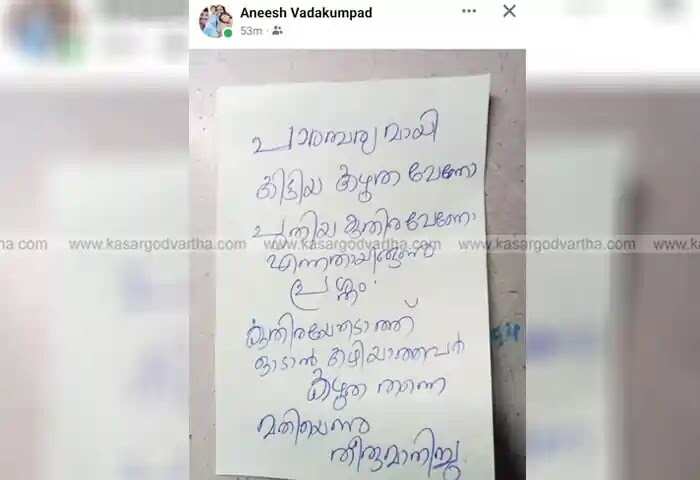 Aneesh Vadakumpad
53m
പാരമ്പര്യമായി
കിട്ടിയ കഴുത വേണോ
പുതിയ കുതിരവേണോ
www.kasargodvartha.com www.kasargodvartha.com www.kasargodvartha.com
എന്നതായിരുന്നു
പ്രശ്നം.
കുതിരയോടൊത്ത്
ഓടാൻ കഴിയാത്തവർ
കഴുത തന്നെ
മതിയെന്നു
തീരുമാനിച്ചു